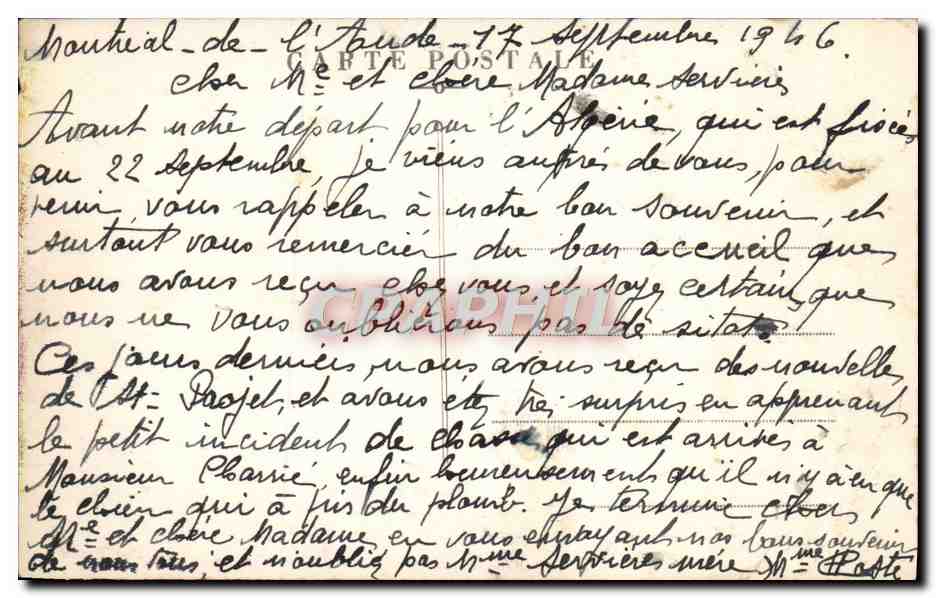 Montréal-de-l'Aude-17 septembre 1946.
CARTE POSTALE
cher Mr et chère Madame Servières
Avant notre départ pour l'Algérie, qui est fixée
au 22 septembre, je viens auprès de vous, pour
venir, vous rappeler à notre bon souvenir, et
surtout vous remercier du bon accueil que
nous avons reçu chez vous et soyez certains que
nous ne vous oublierons pas de sitots
CPAPHIL
Ces jours derniers, nous avons reçu des nouvelles
de St-Projet, et avons étez très surpris en apprenant
le petit incident de chasse, qui est arrivés à
Monsieur Charrié, enfin heureusement qu'il n'y à eu que
le chien qui à pris du plomb. Je termine cher
Mr et chère Madame, en vous envoyant nos bons souvenir
de nous tous, et n'oubliez pas Mme Servières mère Mme Costé